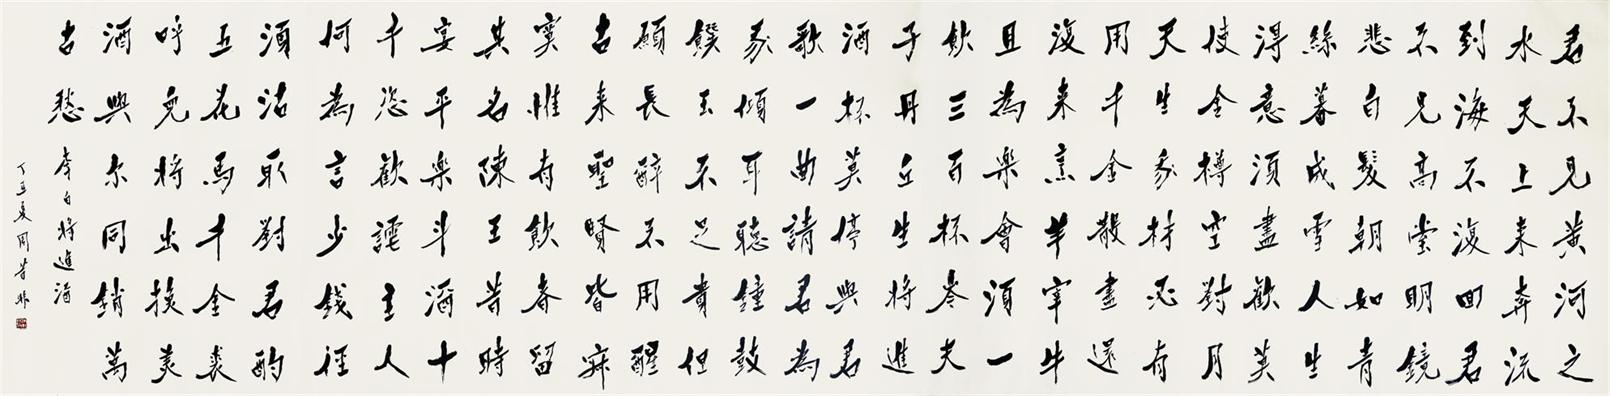 君不見黃河之
水天上来奔流
到海不復回君
不見高堂明鏡
悲白髮朝如青
絲暮成雪人生
得意須盡歡莫
使金樽空對月
天生我材必有
用千金散盡還
復来烹羊宰牛
且為樂會須一
飲三百杯岑夫
子丹丘生將進
酒杯莫停與君
歌一曲請君為
我傾耳聽鐘鼓
饌玉不足貴但
願長醉不用醒
古来聖賢皆寂
寞惟有飲者留
其名陳王昔時
宴平樂斗酒十
千恣歡謔主人
何為言少錢徑
須沽取對君酌
五花馬千金裘
呼兒將出換美
酒與尔同銷萬
古愁 李白將進酒
丁亥夏周昔非